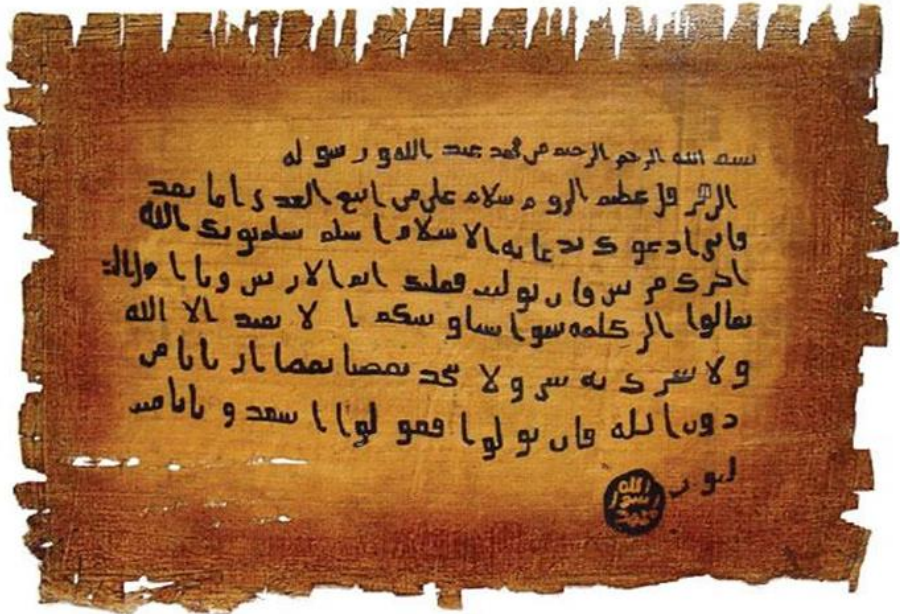 بسم الله الرحمن الرحيم من محمد عبد الله و رسوله
الى هرقل عظيم الروم سلام على من اتبع الهدى اما بعد
فانى ادعوك بدعاية الاسلام اسلم تسلم يوتك الله
اجرك مرتين فان توليت فعليك اثم الاريسين ويا اهل الكتاب
تعالوا الى كلمة سوا بيننا وبينكم ا لا نعبد الا الله
ولا نشرك به شيا ولا يتخذ بعضنا بعضا اربابا من
دون الله فان تولوا فقولوا اشهدوا بانا مسلمون
الله
رسول
محمد